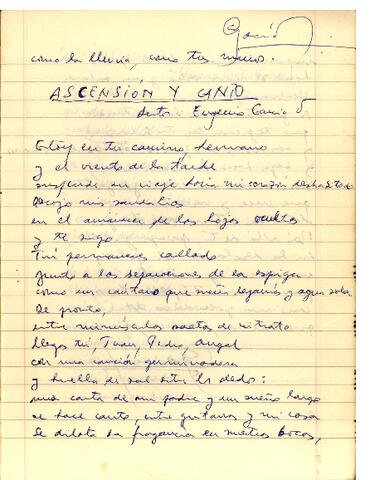 García
como la lluvia, como tus manos.
ASCENSION Y CANTO
Autor: Eugenio García
Estoy en tu camino, hermano
y el viento de la tarde
suspende un viaje hacia mi corazón deshabitado
Recojo mis sandalias
en el amanecer de las hojas ocultas
y te sigo
Tú permaneces callado
junto a las separaciones de la espiga
como un cántaro que sueña lejanías y agua sola
De pronto,
entre minúsculos de nitrato
llegas tú, Juan, Pedro, Angel
con una canción germinadora
y huella de sal entre los dedos:
una carta de mi padre y un sueño largo
se hace canto, entre guitarras y mi casa
se dilata su fragancia en nuestras bocas,